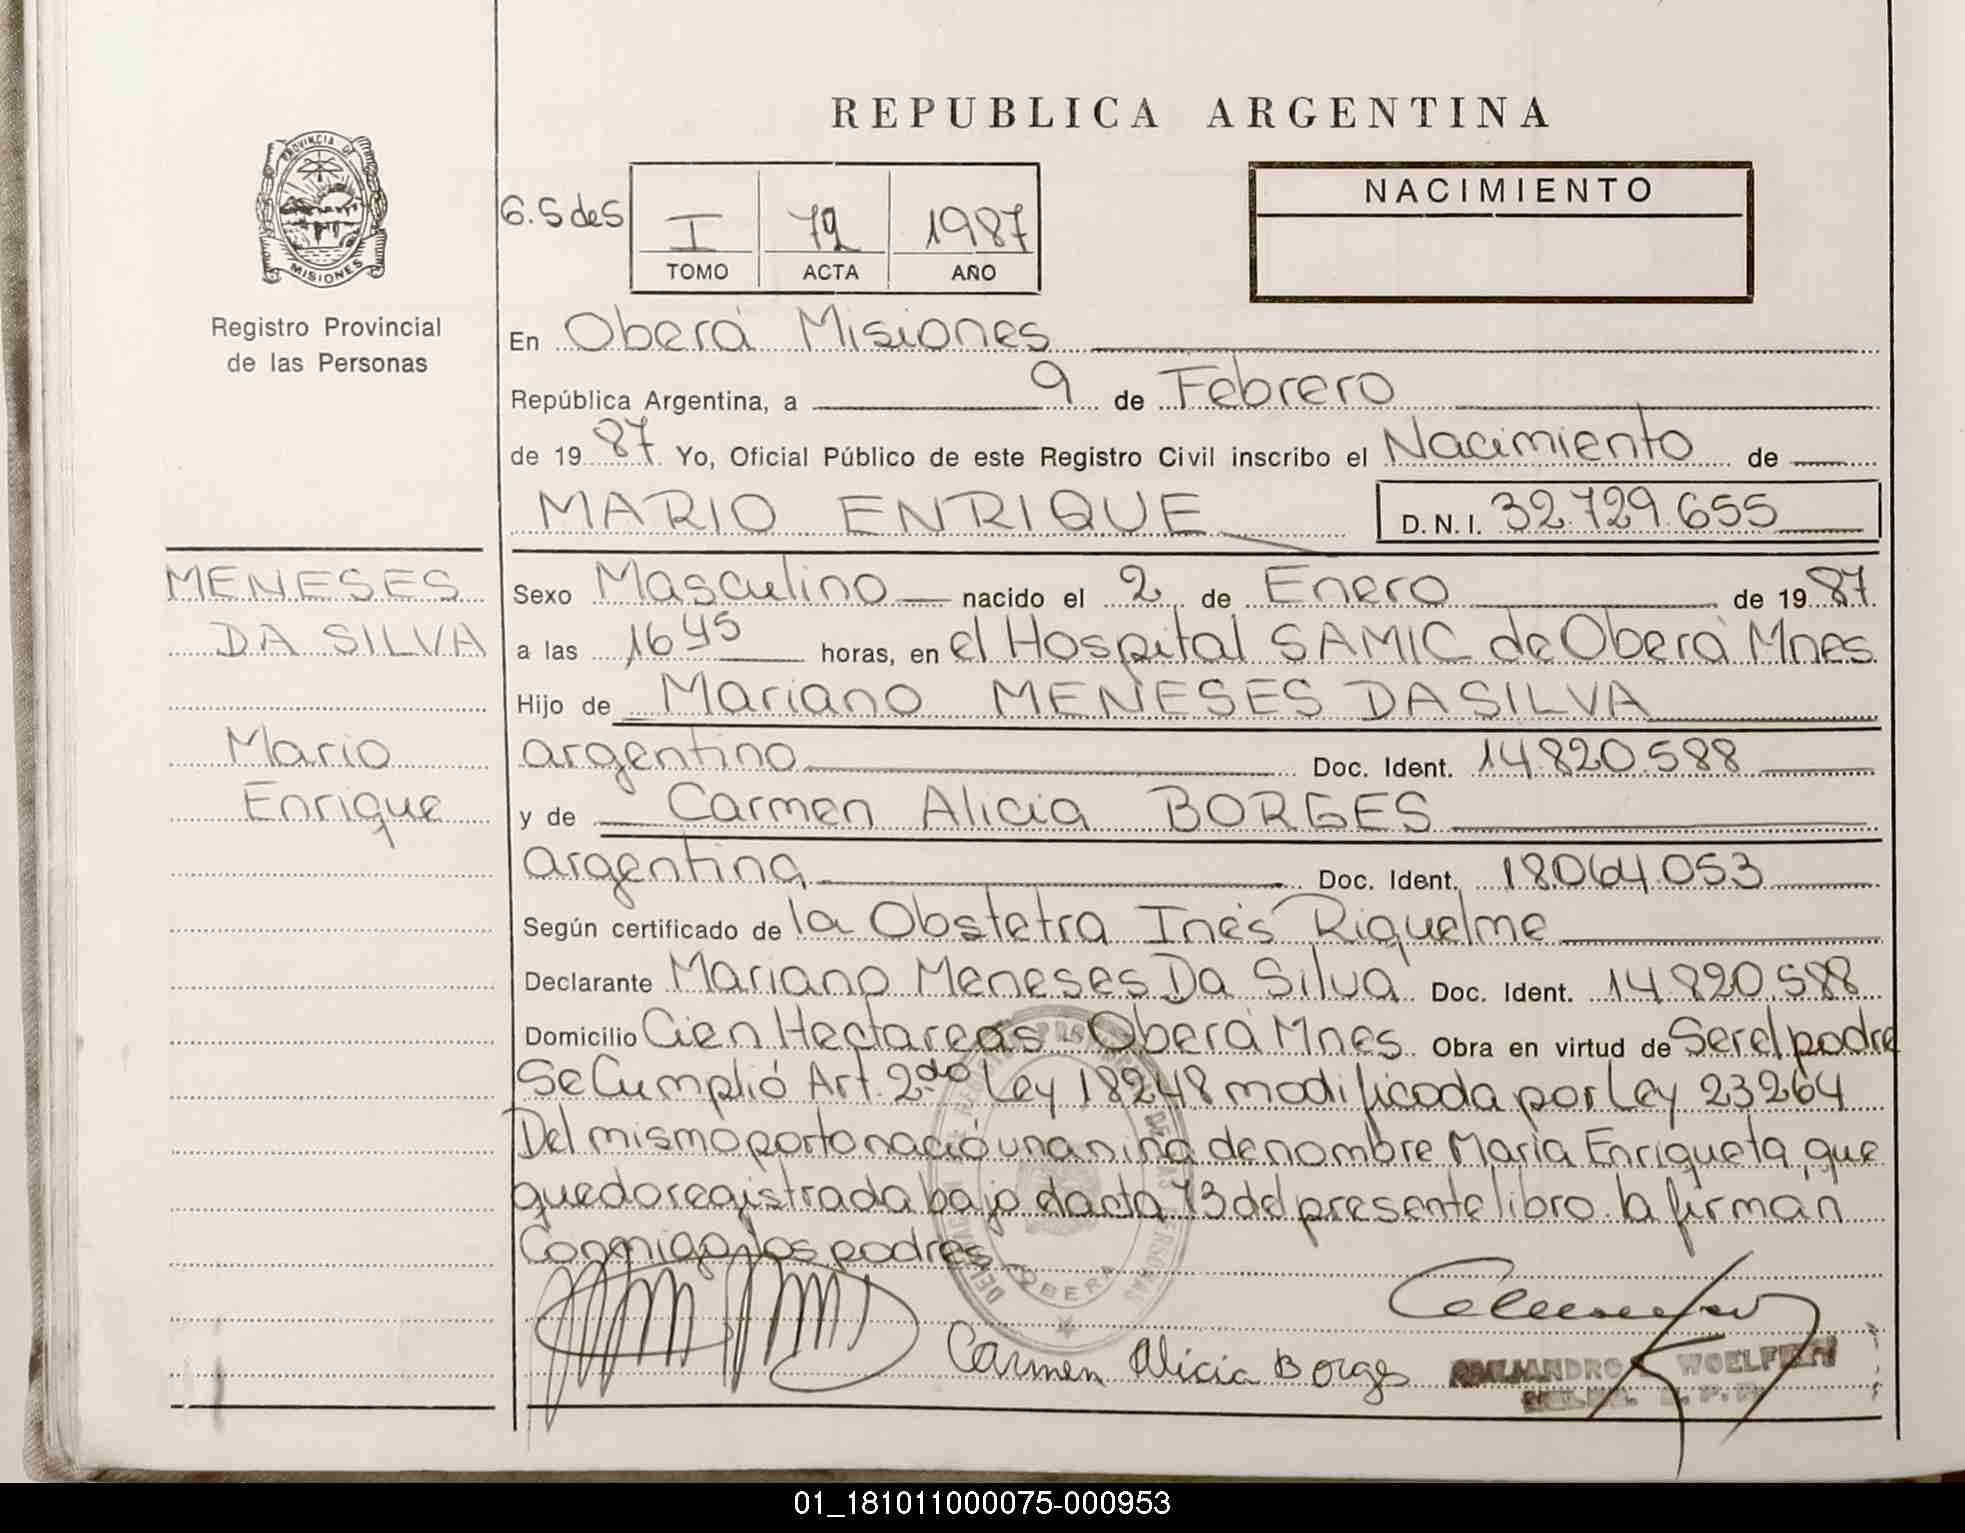 REPUBLICA ARGENTINA
PROVINCIA DE
MISIONES
Registro Provincial
de las Personas
6.5 de 5
I 72 1987
TOMO ACTA AÑO
NACIMIENTO
En Oberá Misiones
República Argentina, a 9 de Febrero
de 19 87 Yo, Oficial Público de este Registro Civil inscribo el Nacimiento de
MARIO ENRIQUE D.N.I. 32.729.655
MENESES
DA SILVA
Mario
Enrique
Sexo Masculino nacido el 2 de Enero de 19 87
a las 16 45 horas, en el Hospital SAMIC de Oberá Mnes
Hijo de Mariano MENESES DA SILVA
argentino Doc. Ident. 14.820.588
y de Carmen Alicia BORGES
argentina Doc. Ident. 18.064.053
Según certificado de la Obstetra Inés Riquelme
Declarante Mariano Meneses Da Silva Doc. Ident. 14.820.588
Domicilio Cien Hectareas - Oberá Mnes. Obra en virtud de Ser el padre
Se Cumplió Art. 2do Ley 18248 modificada por Ley 23264
Del mismo parto nació una niña de nombre María Enriqueta, que
quedo registrada bajo el acta 73 del presente libro. la firman
Conmigo los padres
OBERA
Carmen Alicia Borges
WOELFLIN
01_181011000075-000953